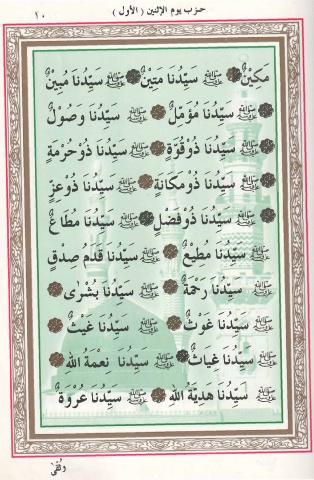 ١٠ حزب يوم الإثنين (الأول)
مَكِينٌ ﷺ سَيِّدُنَا مَتِينٌ ﷺ سَيِّدُنَا مُبِينٌ
ﷺ سَيِّدُنَا مُؤَمِّلٌ ﷺ سَيِّدُنَا وَصُولٌ
ﷺ سَيِّدُنَا ذُو قُوَّةٍ ﷺ سَيِّدُنَا ذُو حُرْمَةٍ
ﷺ سَيِّدُنَا ذُو مَكَانَةٍ ﷺ سَيِّدُنَا ذُو عِزٍّ
ﷺ سَيِّدُنَا ذُو فَضْلٍ ﷺ سَيِّدُنَا مُطَاعٌ
ﷺ سَيِّدُنَا مُطِيعٌ ﷺ سَيِّدُنَا قَدَمُ صِدْقٍ
ﷺ سَيِّدُنَا رَحْمَةٌ ﷺ سَيِّدُنَا بُشْرَى
ﷺ سَيِّدُنَا غَوْثٌ ﷺ سَيِّدُنَا غَيْثٌ
ﷺ سَيِّدُنَا غِيَاثٌ ﷺ سَيِّدُنَا نِعْمَةُ اللهِ
ﷺ سَيِّدُنَا هَدِيَّةُ اللهِ ﷺ سَيِّدُنَا عُرْوَةٌ
وُثْقَى